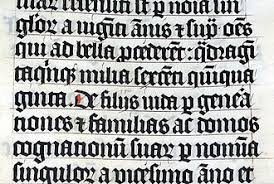 suaꝝ recensiti st̄ p̱ noīa sin
gl̄oꝝ a uigīti ānis ⁊ sup̄ oēs
qui ad bella ꝓcederēt: q̄dragī
ta q̄nqꝫ milia sexcēti quīqua
ginta. De filiis iuda p̱ geneꝛa
tiones ⁊ familias ac domos
cognationum suaꝝ p̱ nomīa
singuloꝝ a uicesimo āno et